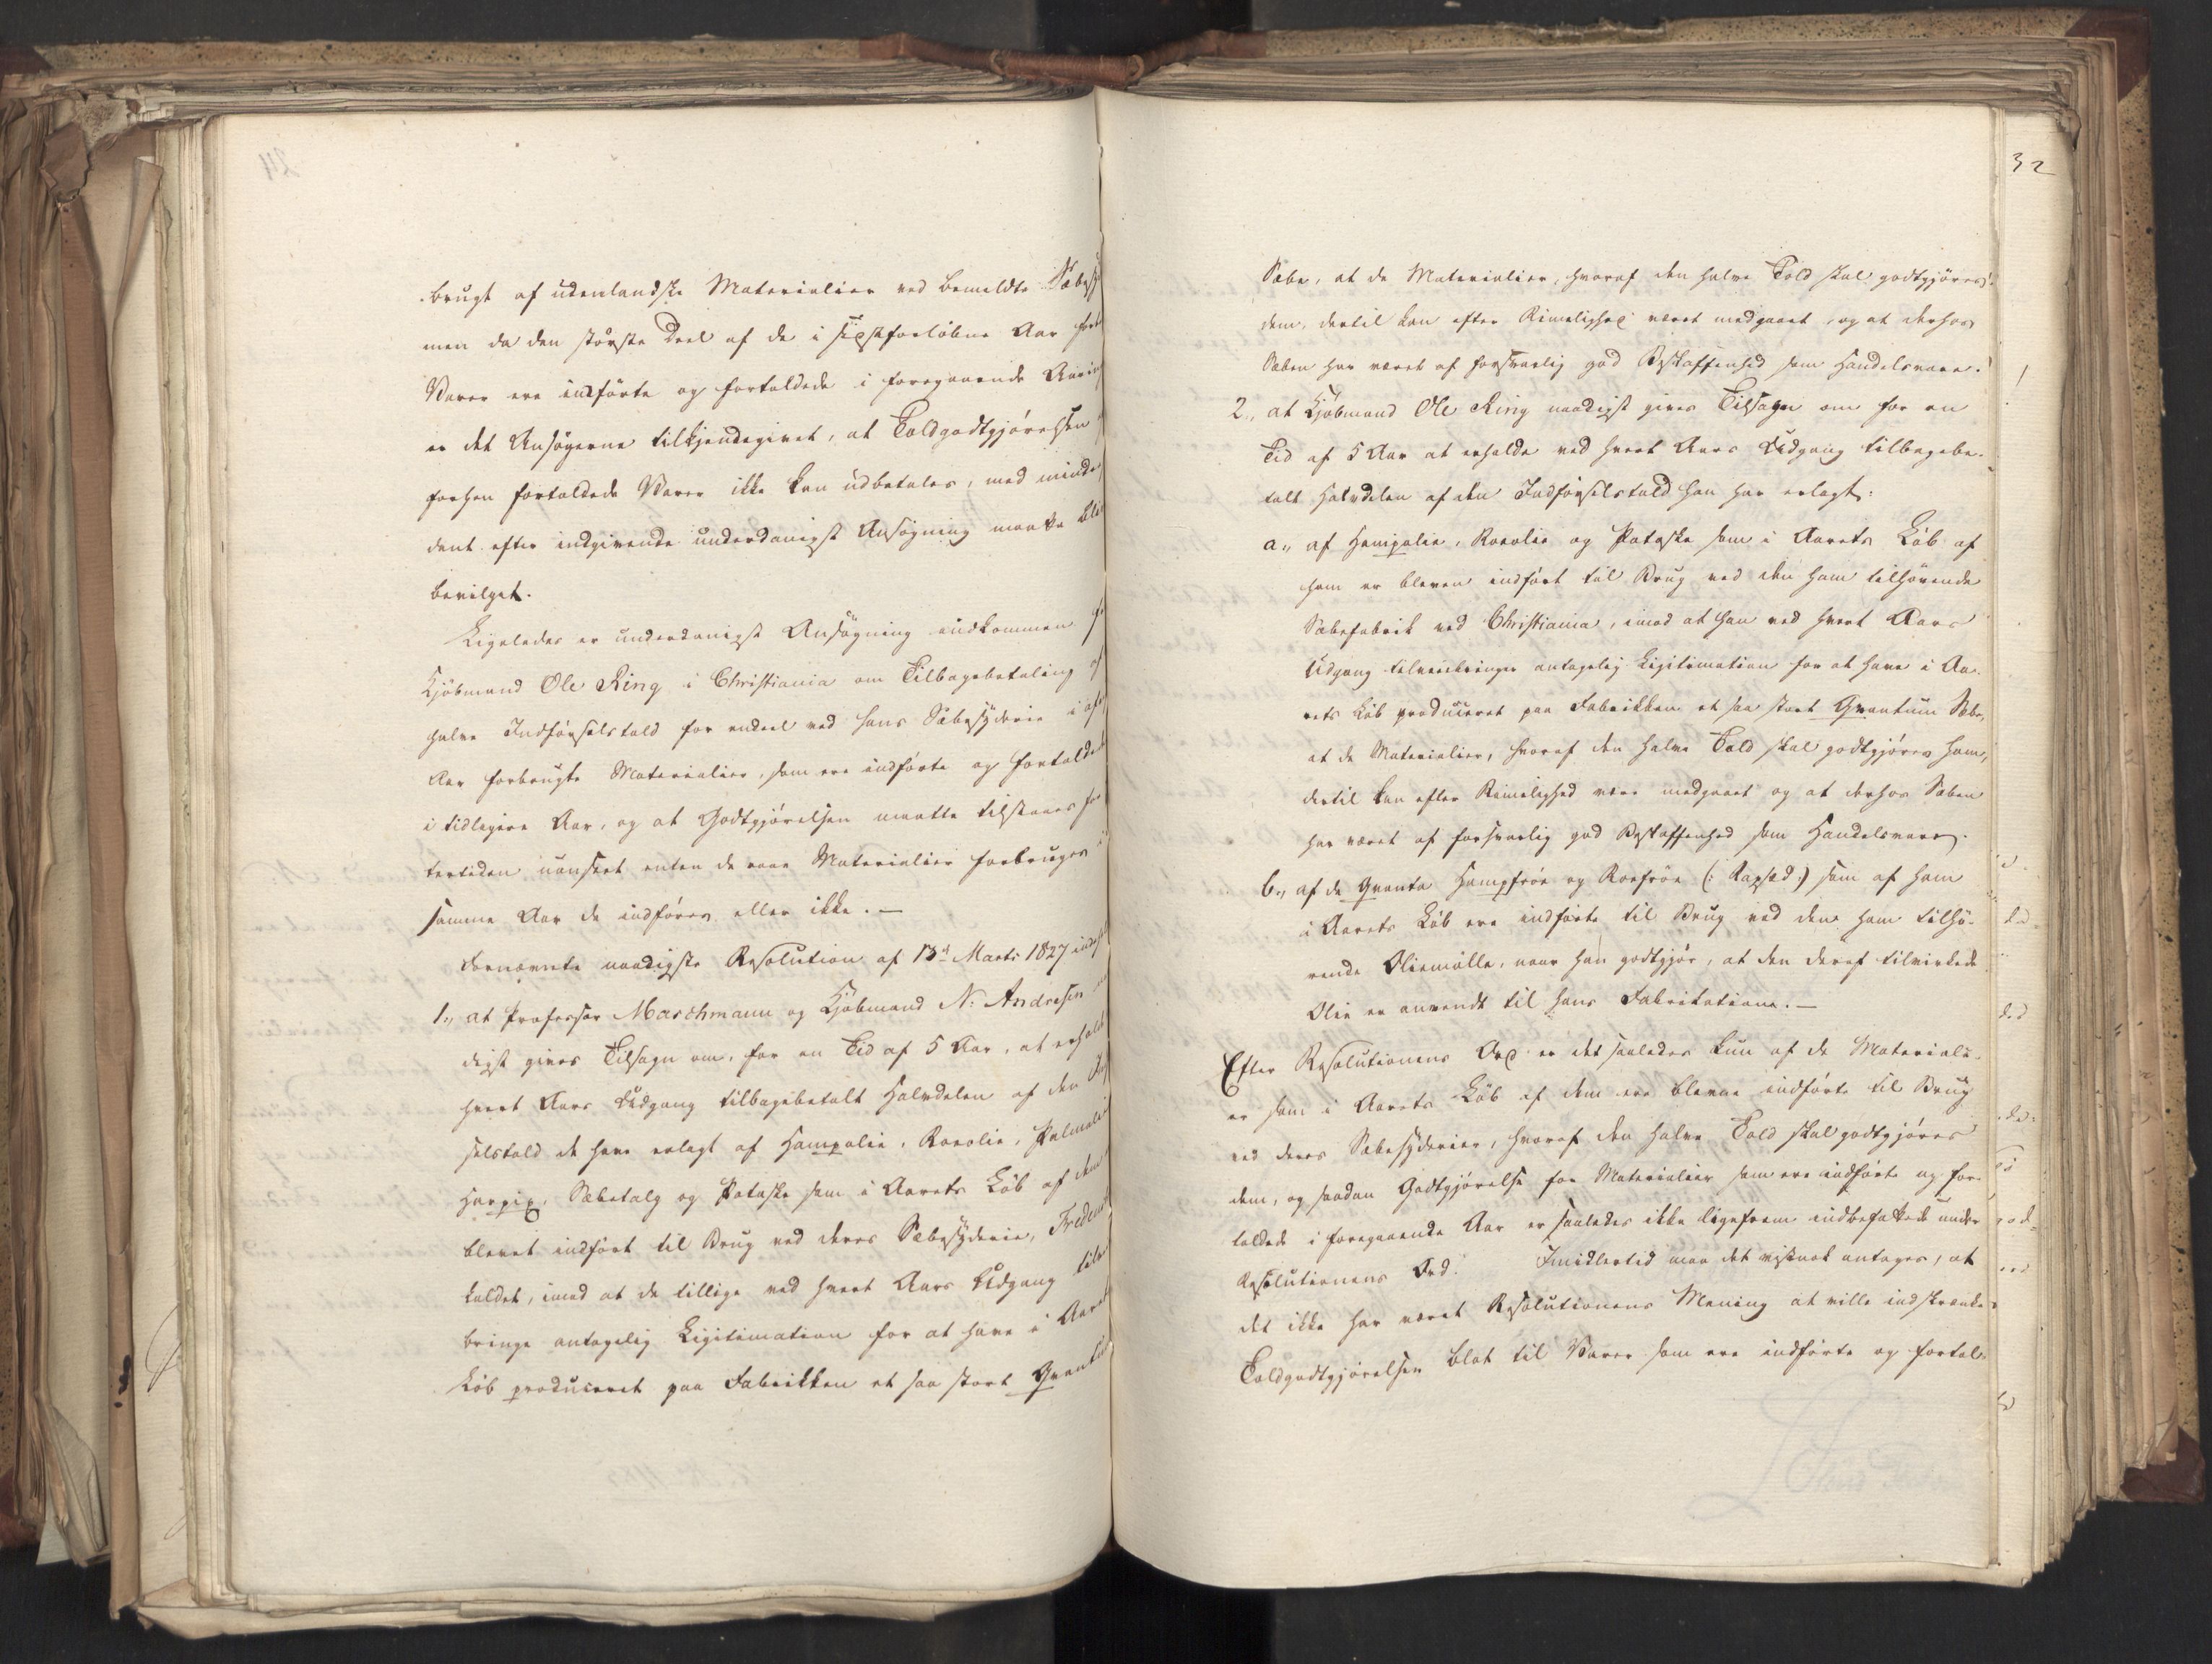 brugt af udenlandske Materialier ved bemeldte Sæbesy
men da den største Deel af de i sidstforløbne Aar forb
Varer ere indførte og fortoldede i foregaaende Aaring
er det Ansøgerne tilkjendegivet, at Toldgodtgjørelsen
forhen fortoldede Varer ikke kan udbetales, med minde
dent efter indgivende underdanigst Ansøgning maatte bli
bevilget.
Ligeledes er underdanigst Ansøgning indkommen fr
Kjøbmand Ole Ring i Christiania om Tilbagebetaling af
halve Indførselstold for endeel ved hans Sæbesyderie i afv
Aar forbrugte Materialier, som ere indførte og fortolded
i tidligere Aar, og at Godtgjørelsen maatte tilstaaes for
tertiden uanseet enten de raae Materialier forbruges i
samme Aar de indføres eller ikke. —
Fornævnte naadigste Resolution af 13d Marts 1827
1., at Professor Maschmann og Kjøbmand N. Andresen
digst gives Tilsagn om, for en Tid af 5 Aar, at erhold
hvert Aars Udgang tilbagebetalt Halvdelen af den Ind
selstold de have erlagt af Hampolie, Roeolie, Palmeoli
Harpix, Sæbetalg og Potaske som i Aarets Løb af dem
blevet indført til Brug ved deres Sæbesyderie, Fredens
kaldet, imod at de tillige ved hvert Aars Udgang tilv
bringe antagelig Ligitimation for at have i Aaret
Løb produceret paa Fabrikken et saa stort Qvantu
32
Sæbe, at de Materialier, hvoraf den halve Told skal godtgjøres
dem, dertil kan efter Rimelighed været medgaaet, og at derhos
Sæben har været af forsvarlig god Beskaffenhed som Handelsvare.
2., at Kjøbmand Ole Ring naadigst gives Tilsagn om for en
Tid af 5 Aar at erholde ved hvert Aars Udgang tilbagebe-
talt Halvdelen af den Indførselstold han har erlagt:
a., af Hampolie, Roeolie og Potaske som i Aarets Løb af
ham er bleven indført til Brug ved den ham tilhørende
Sæbefabrik ved Christiania, imod at han ved hvert Aars
Udgang tilveiebringer antagelig Ligitimation for at have i Aa-
rets Løb produceret paa Fabrikken et saa stort Qvantum Sæbe,
at de Materialier, hvoraf den halve Told skal godtgjøres ham,
dertil kan efter Rimelighed være medgaaet og at derhos Sæben
har været af forsvarlig god Beskaffenhed som Handelsvare.
b., af de Qvanta Hampfrøe og Roefrøe (: Rapsæd :) som af ham
i Aarets Løb ere indførte til Brug ved den ham tilhø-
rende Oliemølle, naar han godtgjør, at den deraf tilvirkede
Olie er anvendt til hans Fabrikation. —
Efter Resolutionens Ord er det saaledes kun af de Materiali-
er som i Aarets Løb af dem ere blevne indførte til Brug
ved deres Sæbesyderier, hvoraf den halve Told skal godtgjøres
dem, og saadan Godtgjørelse for Materialier som ere indførte og for-
toldede i foregaaende Aar er saaledes ikke ligefrem indbefattede under
Resolutionens Ord. Imidlertid maa det vistnok antages, at
det ikke har været Resolutionens Mening at ville indskrænke
Toldgodtgjørelsen blot til Varer som ere indførte og fortol-